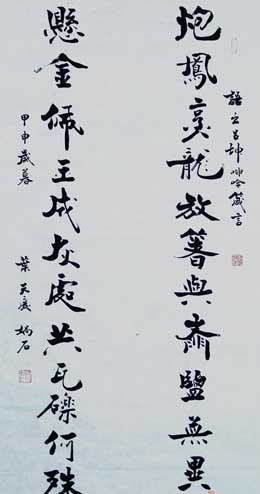 炮鳳烹龍放箸與齏鹽無異
語出呂坤呻吟箴言
懸金佩玉成灰處共瓦礫何殊
甲申歲暮 葉